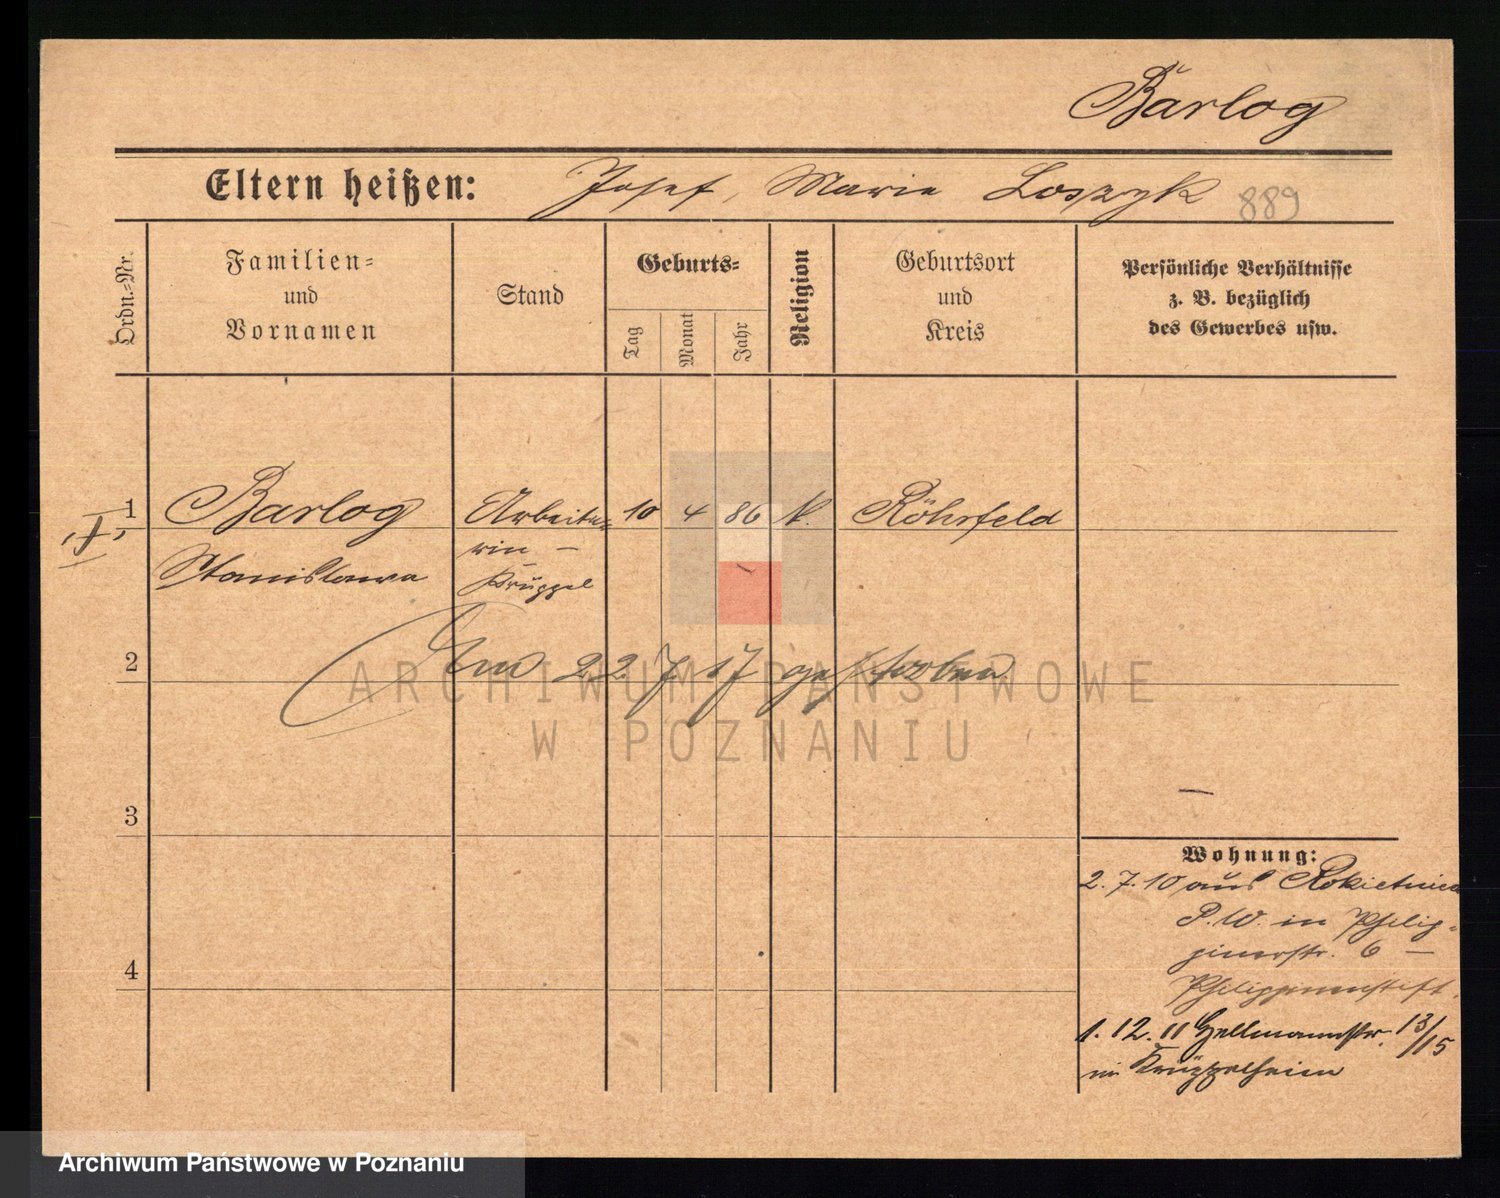 Barlog
Eltern heißen: Josef, Marie Loszyk 889
Ordn.-Nr.
Familien-
und
Vornamen
Stand
Geburts-
Tag
Monat
Jahr
Religion
Geburtsort
und
Kreis
Persönliche Verhältnisse
z. B. bezüglich
des Gewerbes usw.
1 Barlog Arbeite- 10 4 86 k. Röhrfeld
rin —
Stanislawa Krüppel
2 Am 22 7 17 gestorben
ARCHIWUM PAŃSTWOWE
W POZNANIU
3
Wohnung:
2. 7. 10 aus Rokietnica
P. W. in Philip-
pinerstr. 6 —
4
Philippinenstift.
1. 12. 11 Hellmannstr. 13/15
im Krüppelheim
Archiwum Państwowe w Poznaniu